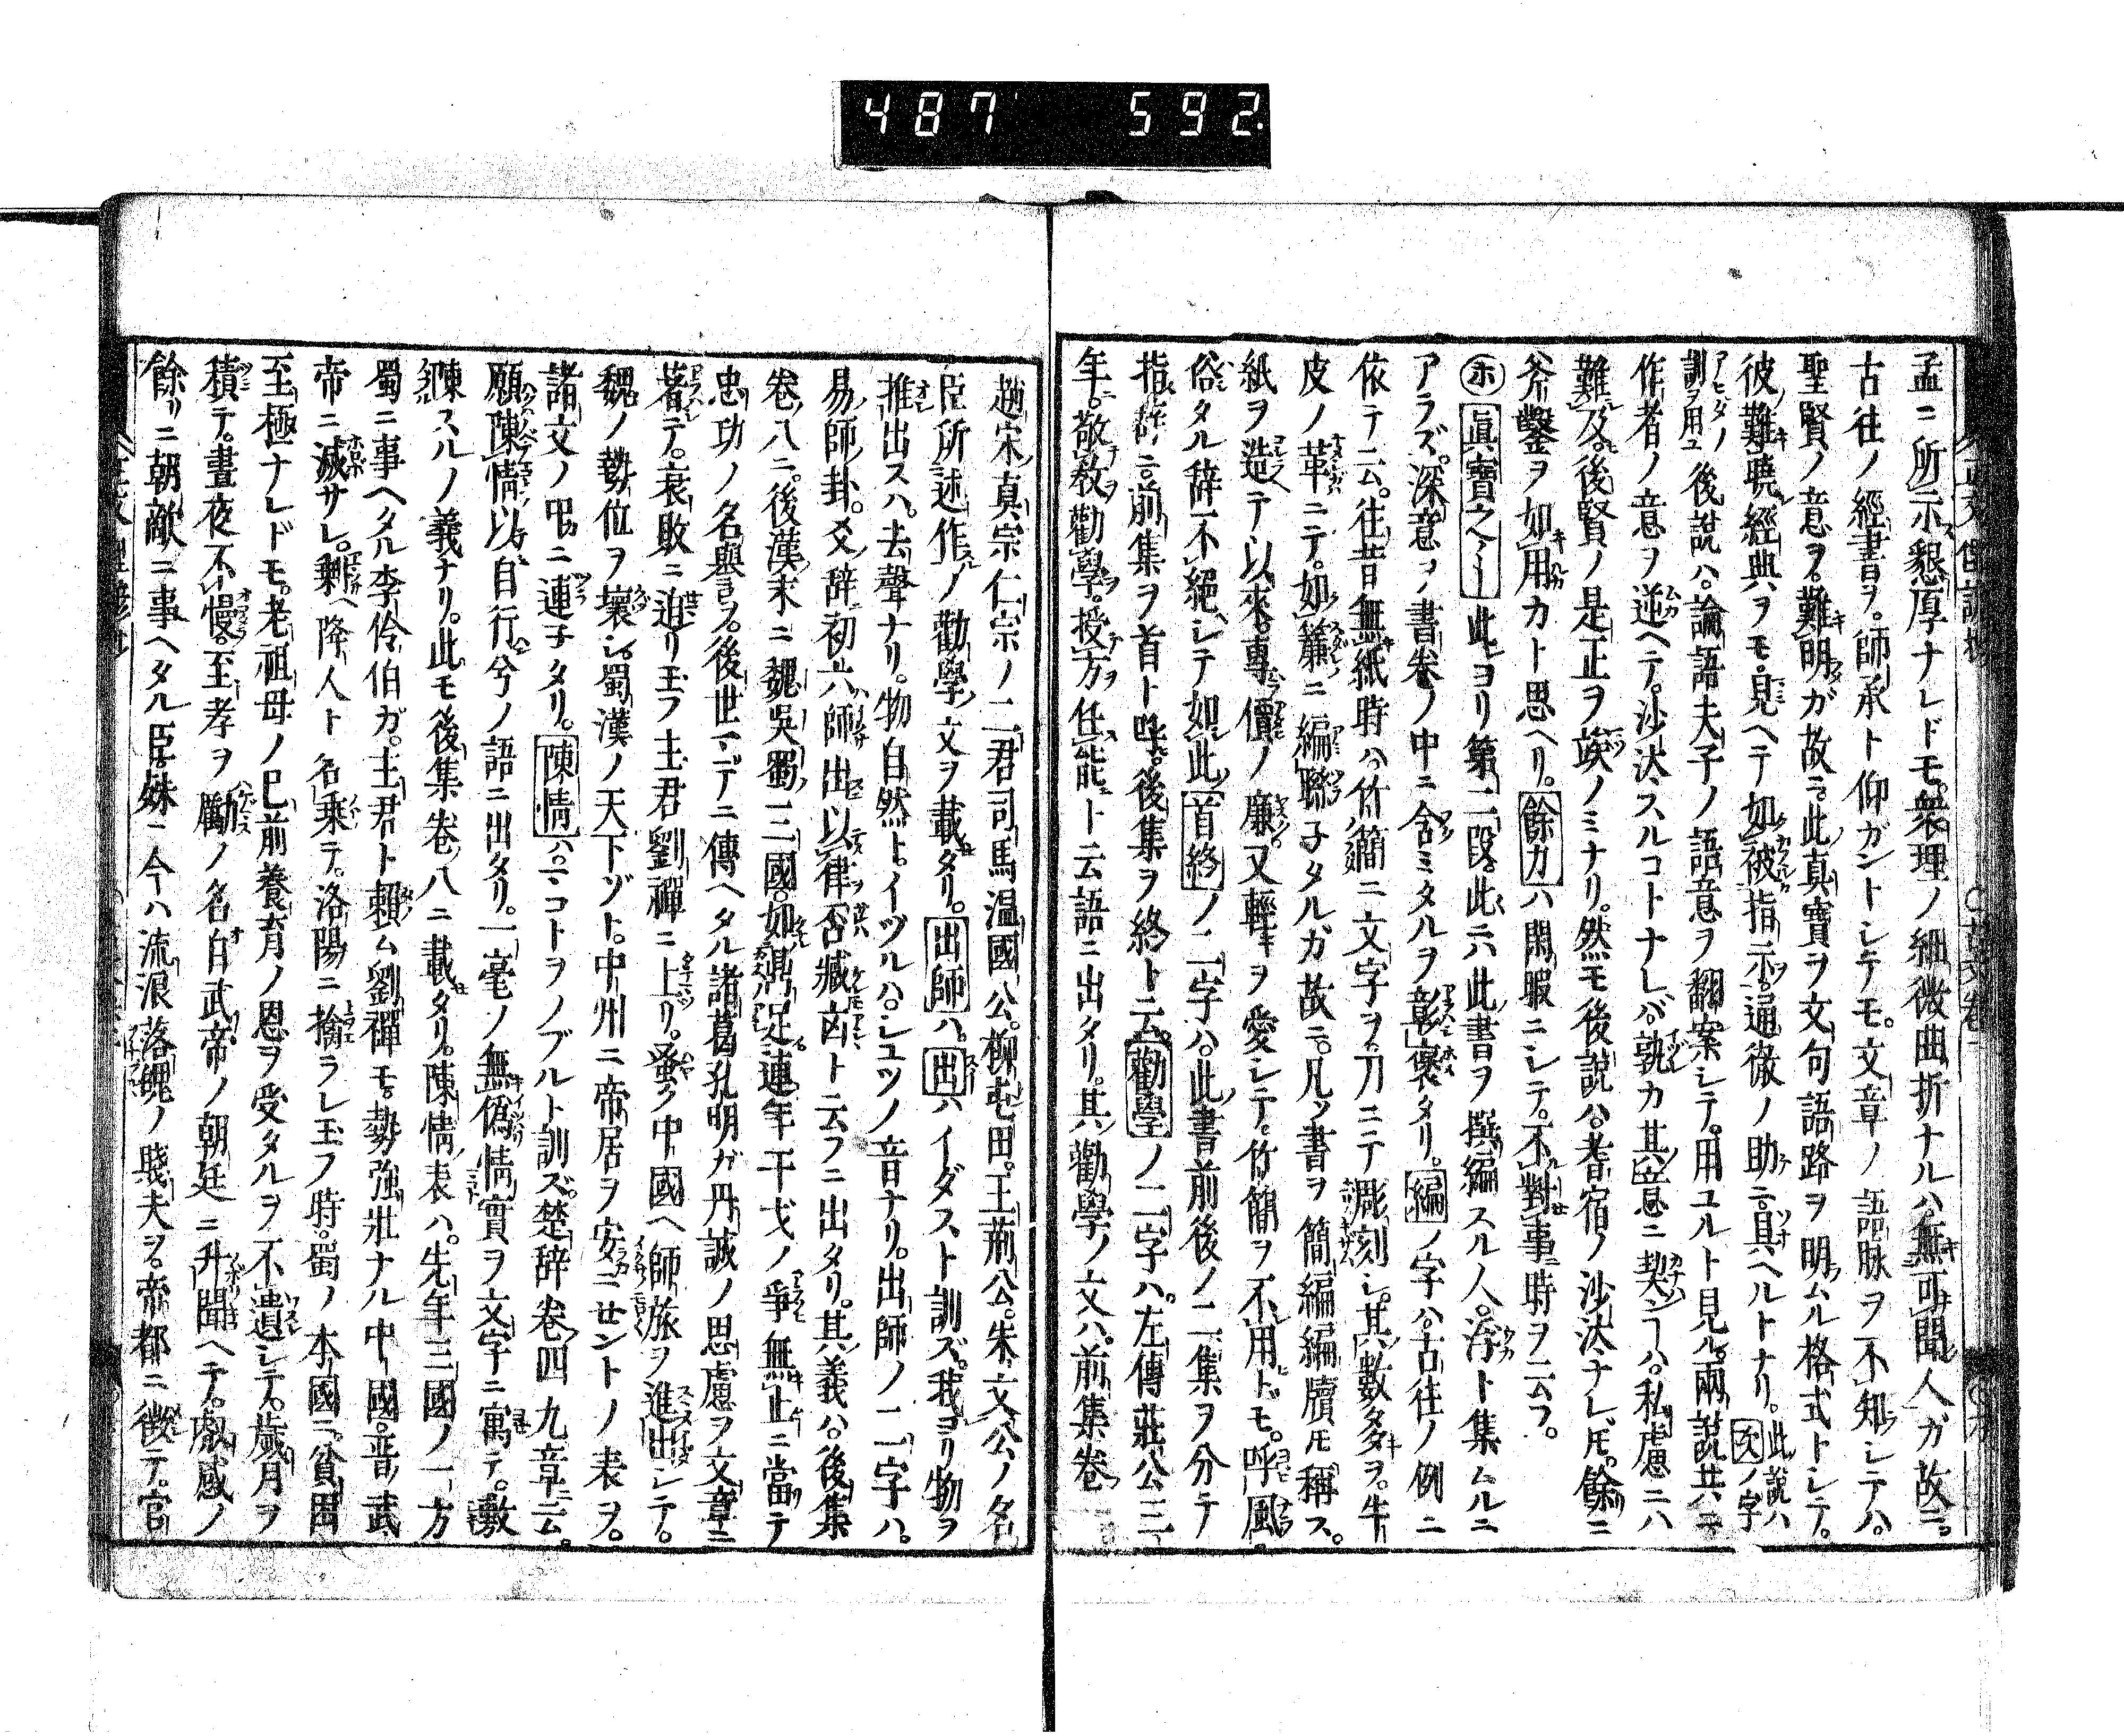 487 592.
孟ニ所示懇厚ナレドモ。衆理ノ細微曲折ナルハ無可聞人ガ故ニ。
古往ノ經書ヲ。師承ト仰ガントシテモ。文章ノ語脉ヲ不知シテハ。
聖賢ノ意ヲ。難明ガ故ニ。此真寳ヲ文句語路ヲ明ムル格式トシテ。
彼難曉經典ヲモ。見ヘテ如被指示。通徹ノ助ニ具ヘルトナリ。此説ハ
訓ヲ用ユ後説ハ。論語夫子ノ語意ヲ翻案シテ。用ユルト見ル。兩説共ニ
作者ノ意ヲ逆ヘテ。沙汰スルコトナレバ。孰カ其意ニ契ンハ。私慮ニハ
難及。後賢ノ是正ヲ竢ノミナリ。然モ後説ハ。耆宿ノ沙汰ナレ𪜈。餘ニ
斧鑿ヲ如用カト思ヘリ。餘力ハ閑暇ニシテ。不對事時ヲ云フ。
ホ 眞寳之 此ヨリ第二段。此ハ此書ヲ撰編スル人。浮ト集ムルニ
アラズ。深意ノ書卷ノ中ニ含ミタルヲ彰襃タリ。編ノ字ハ。古往ノ例ニ
依テ云。往昔無紙時ハ。竹簡ニ文字ヲ刀ニテ彫刻シ。其數タヲ。牛
皮ノ革ニテ。如簾ニ編聯子タルガ故ニ。凡ソ書ヲ簡編編牘𪜈稱ス。
紙ヲ造テ以來。專價ノ廉又輕キヲ愛シテ。竹簡ヲ不用トモ。呼風
俗タル辞不絕シテ如此 首終ノ二字ハ。此書前後ノ二集ヲ分テ
指辞ニ。前集ヲ首ト呼。後集ヲ終ト云。勸學ノ二字ハ。左傳莊公三
年。敬敎勸學。授方任能ト云語ニ出タリ。其勸學ノ文ハ。前集卷
趙宋真宗仁宗ノ二君司馬温國公。柳屯田。王荊公。朱文公ノ名
臣所述作ノ勸學文ヲ載タリ。出師ハ。出ハイダスト訓ズ。我ヨリ物ヲ
推出スハ。去聲ナリ。物自然ト。イヅルハ。シユツノ音ナリ。出師ノ二字ハ。
易師卦。爻辞初六師出以律否臧凶ト云フニ出タリ。其義ハ。後集
卷ノ八ニ。後漢末ニ魏吳蜀三國。如鼎足連年干戈ノ爭無止ニ當テ
忠功ノ名輿言フ。後世マデニ傳ヘタル諸葛孔明ガ丹誠ノ思慮ヲ文章ニ
著テ。衰敗ニ迫リ玉フ主君劉禪ニ上リ。蚤ク中國ヘ師旅ヲ進出シテ。
魏ノ勢位ヲ壞シ。蜀漢ノ天下ゾト。中州ニ帝居ヲ安ニセントノ表ヲ。
諸文ノ中ニ連子タリ。陳情ハ。マコトヲノブルト訓ズ。楚辞卷四九章ニ云。
願陳情以自行兮ノ語ニ出タリ。一毫ノ無偽情實ヲ文字ニ寓テ。敷
陳スルノ義ナリ。此モ後集卷八ニ載タリ。陳情表ハ。先年三國ノ一方
蜀ニ事ヘタル李伶伯ガ。主君ト賴ム劉禪モ。勢強壯ナル中國。晋武
帝ニ滅サレ。剰ヘ降人ト名乗テ。洛陽ニ擒ラレ玉フ時。蜀ノ本國ニ。貧困
至極ナレドモ。老祖母ノ已前養育ノ恩ヲ受タルヲ不遺シテ。歳月ヲ
積テ。晝夜不慢。至孝ヲ勵ノ名自武帝ノ朝廷ニ升聞ヘテ。感ノ
餘リニ朝敵ニ事ヘタル臣。殊ニ今ハ流浪落魄ノ賤夫ヲ。帝都ニ徴テ。官